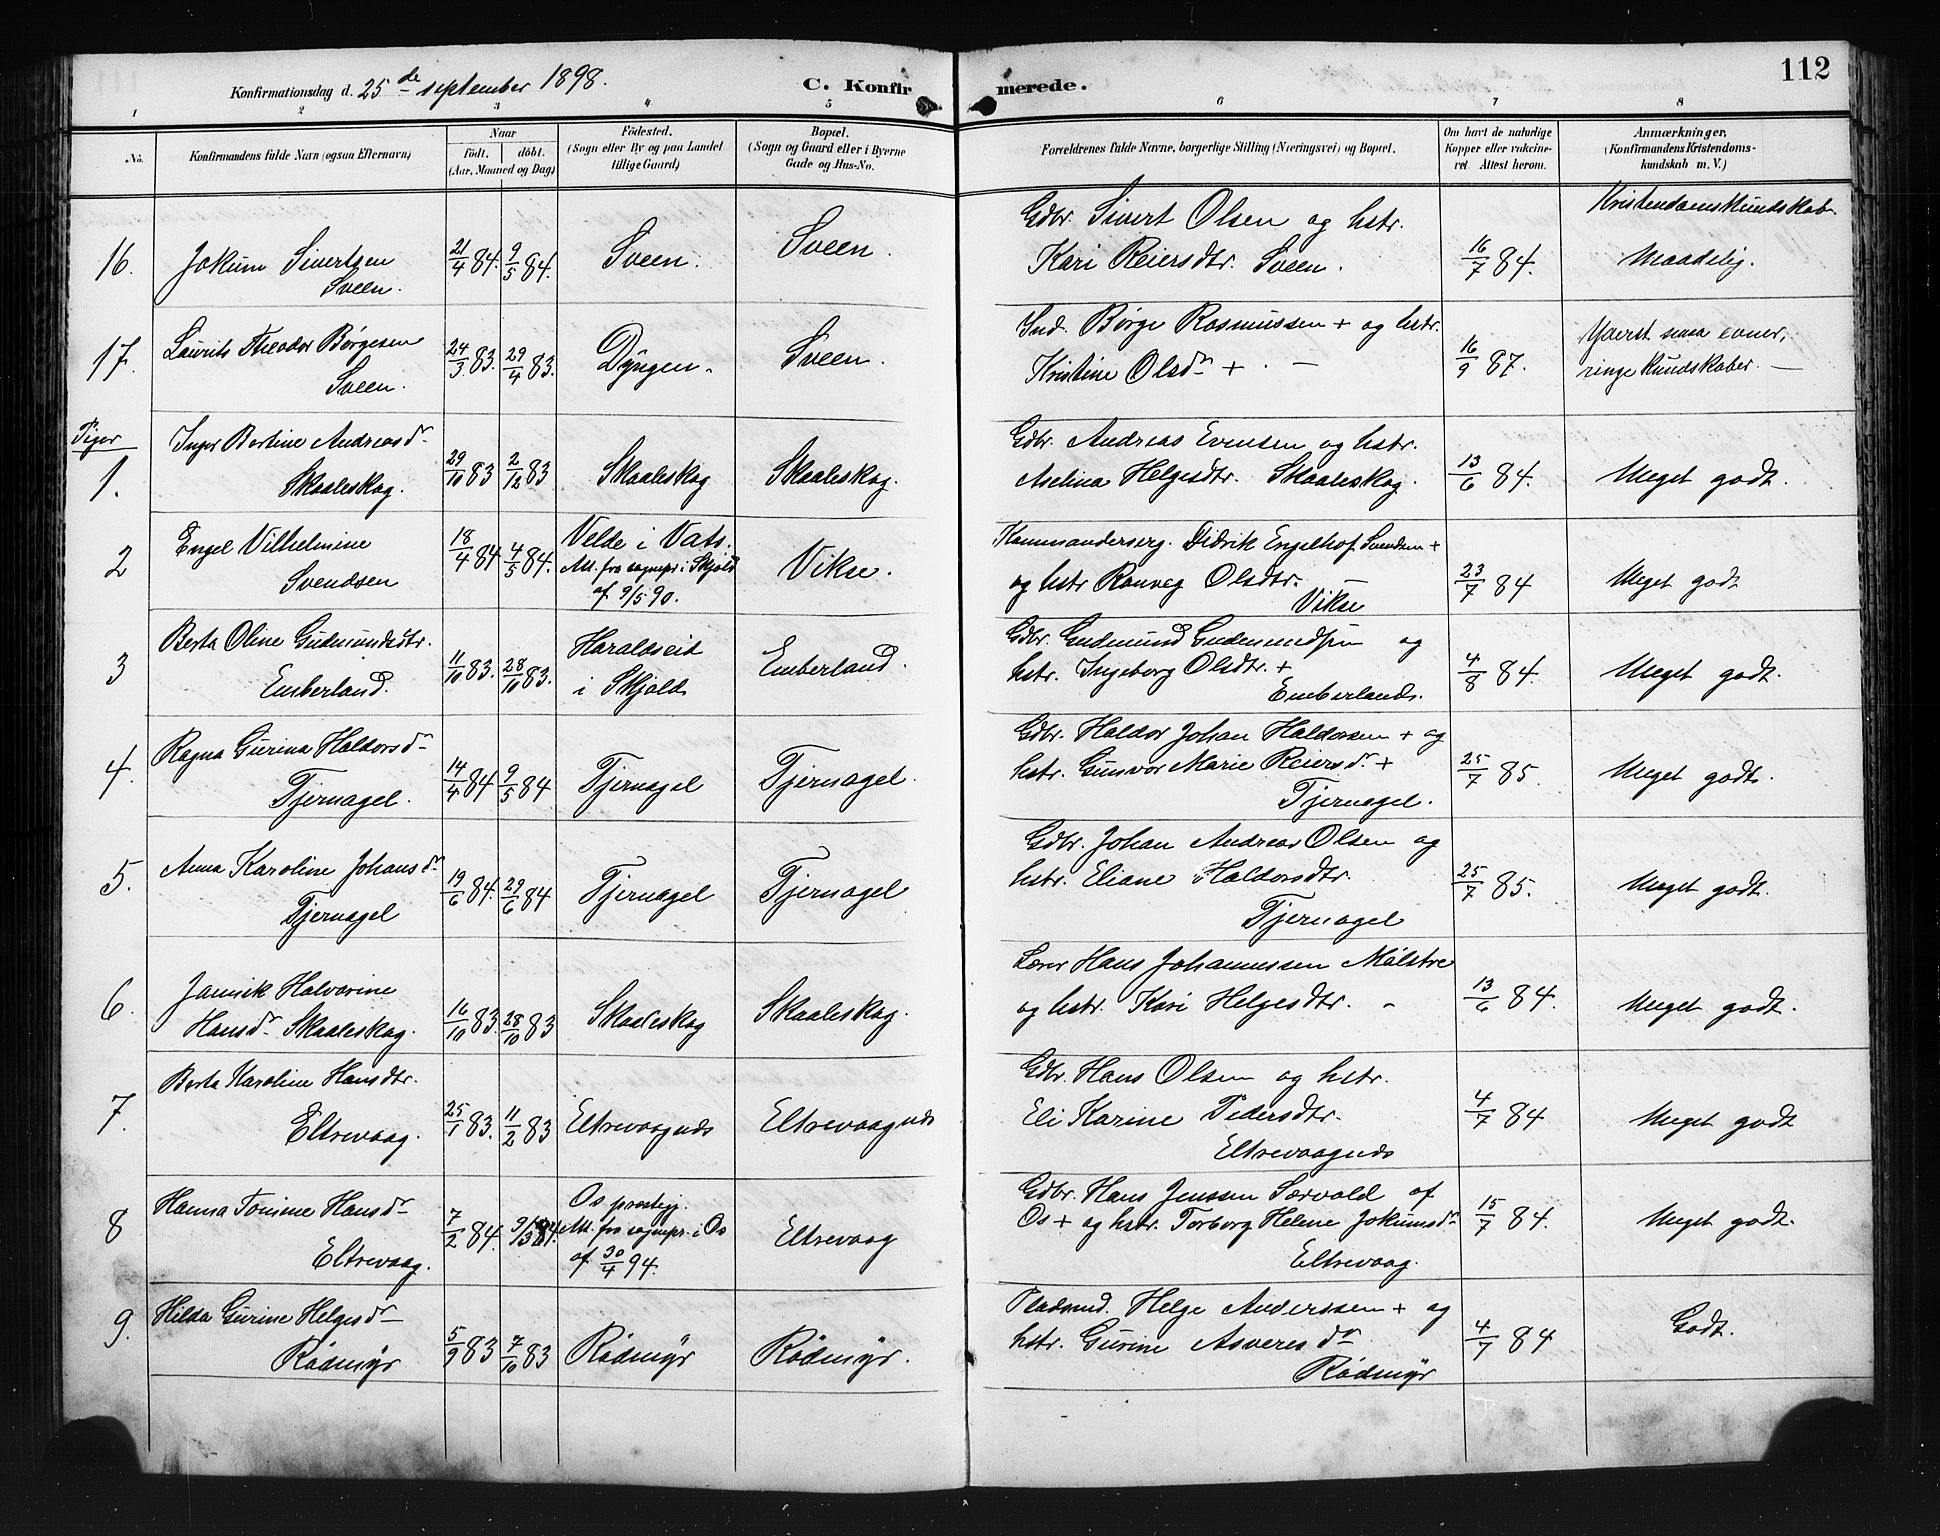 112
Konfirmationsdag d. 25de september 1898. C. Konfirmerede.
1 2 3 4 5 6 7 8
No. Konfirmandens fulde Navn (ogsaa Efternavn) Naar födt. döbt. (Aar, Maaned og Dag) Födested. (Sogn eller By og paa Landet tillige Gaard) Bopæl. (Sogn og Gaard eller i Byerne Gade og Hus-No. Forældrenes fulde Navne, borgerlige Stilling (Næringsvei) og Bopæl. Om havt de naturlige Kopper eller vakcineret. Attest herom. Anmærkninger, (Konfirmandens Kristendomskundskab m. V.)
Kristendomskundskab
16. Jokum Sivertsen Sveen. 21/4 84. 9/5 84. Sveen. Sveen. Gdbr. Sivert Olsen og hstr. Kari Reiersdtr. Sveen. 16/7 84. Maadelig.
17. Laurits Theodor Børgesen Sveen. 24/3 83. 29/4 83. Dyngen. Sveen. Ind. Børge Rasmussen + og hstr. Kristine Olsdr + . — 16/9 87. Yderst smaa evner, ringe kundskaber. —
Piger
1. Inger Bertine Andreasdr Skaaleskog. 29/10 83 2/12 83 Skaaleskog Skaaleskog. Gdbr. Andreas Evensen og hstr. Aselina Helgesdtr. Skaaleskog. 13/6 84. Meget godt.
2 Engel Vilhelmine Svendsen 18/4 84 4/5 84. Velde i Vats. Att. fra sognepr. i Skjold af 9/5 90. Vikse. Kommanderserg. Didrik Engelhof Svendsen + og hstr Ranveg Olsdtr. — Vikse 23/7 84 Meget godt
3 Berta Oline Gudmundsdtr. Emberland. 11/10 83. 28/10 83. Haraldseid i Skjold Emberland. Gdbr. Gudmund Gudmundsen og hstr. Ingeborg Olsdtr. + Emberlands. 4/8 84. Meget godt.
4. Ragna Gurina Haldorsdr Tjernagel. 14/4 84 9/5 84 Tjernagel Tjernagel. Gdbr. Haldor Johan Haldorsen + og hstr. Gunvor Marie Reiersdr + Tjernagel. 25/7 85. Meget godt.
5. Anna Karoline Johansdr Tjernagel 19/6 84. 29/6 84 Tjernagel Tjernagel Gdbr. Johan Andreas Olsen og hstr. Eliane Haldorsdtr. Tjernagel 25/7 85. Meget godt.
6. Jannik Halvarine Hansdr Skaaleskog. 16/10 83. 28/10 83 Skaaleskog Skaaleskog. Lærer Hans Johannessen Mølstre og hstr. Kari Helgesdtr. - 13/6 84. Meget godt.
7. Berta Karoline Hansdtr. Eltrevaag. 25/1 83. 11/2 83 Eltrevaagnds Eltrevaagnds Gdbr. Hans Olsen og hstr. Eli Karine Pedersdtr. Eltrevaagnds 4/7 84 Meget godt
8 Hanna Tomine Hansdr Eltrevaag. 7/2 84. 9/3 84. Os prestegj. Att. fra sognepr. i Os af 30/4 94. Eltrevaag Gdbr. Hans Jenssen Sørvold af Os + og hstr. Torborg Helene Jokumsdr Eltrevaag. 15/7 84. Meget godt.
9. Hilda Gurine Helgesdr Rødmyr 5/9 83 7/10 83 Rødmyr Rødmyr. Pladsmd. Helge Anderssen + og hstr. Gurine Asveresdr Rødmyr 4/7 84 Godt.